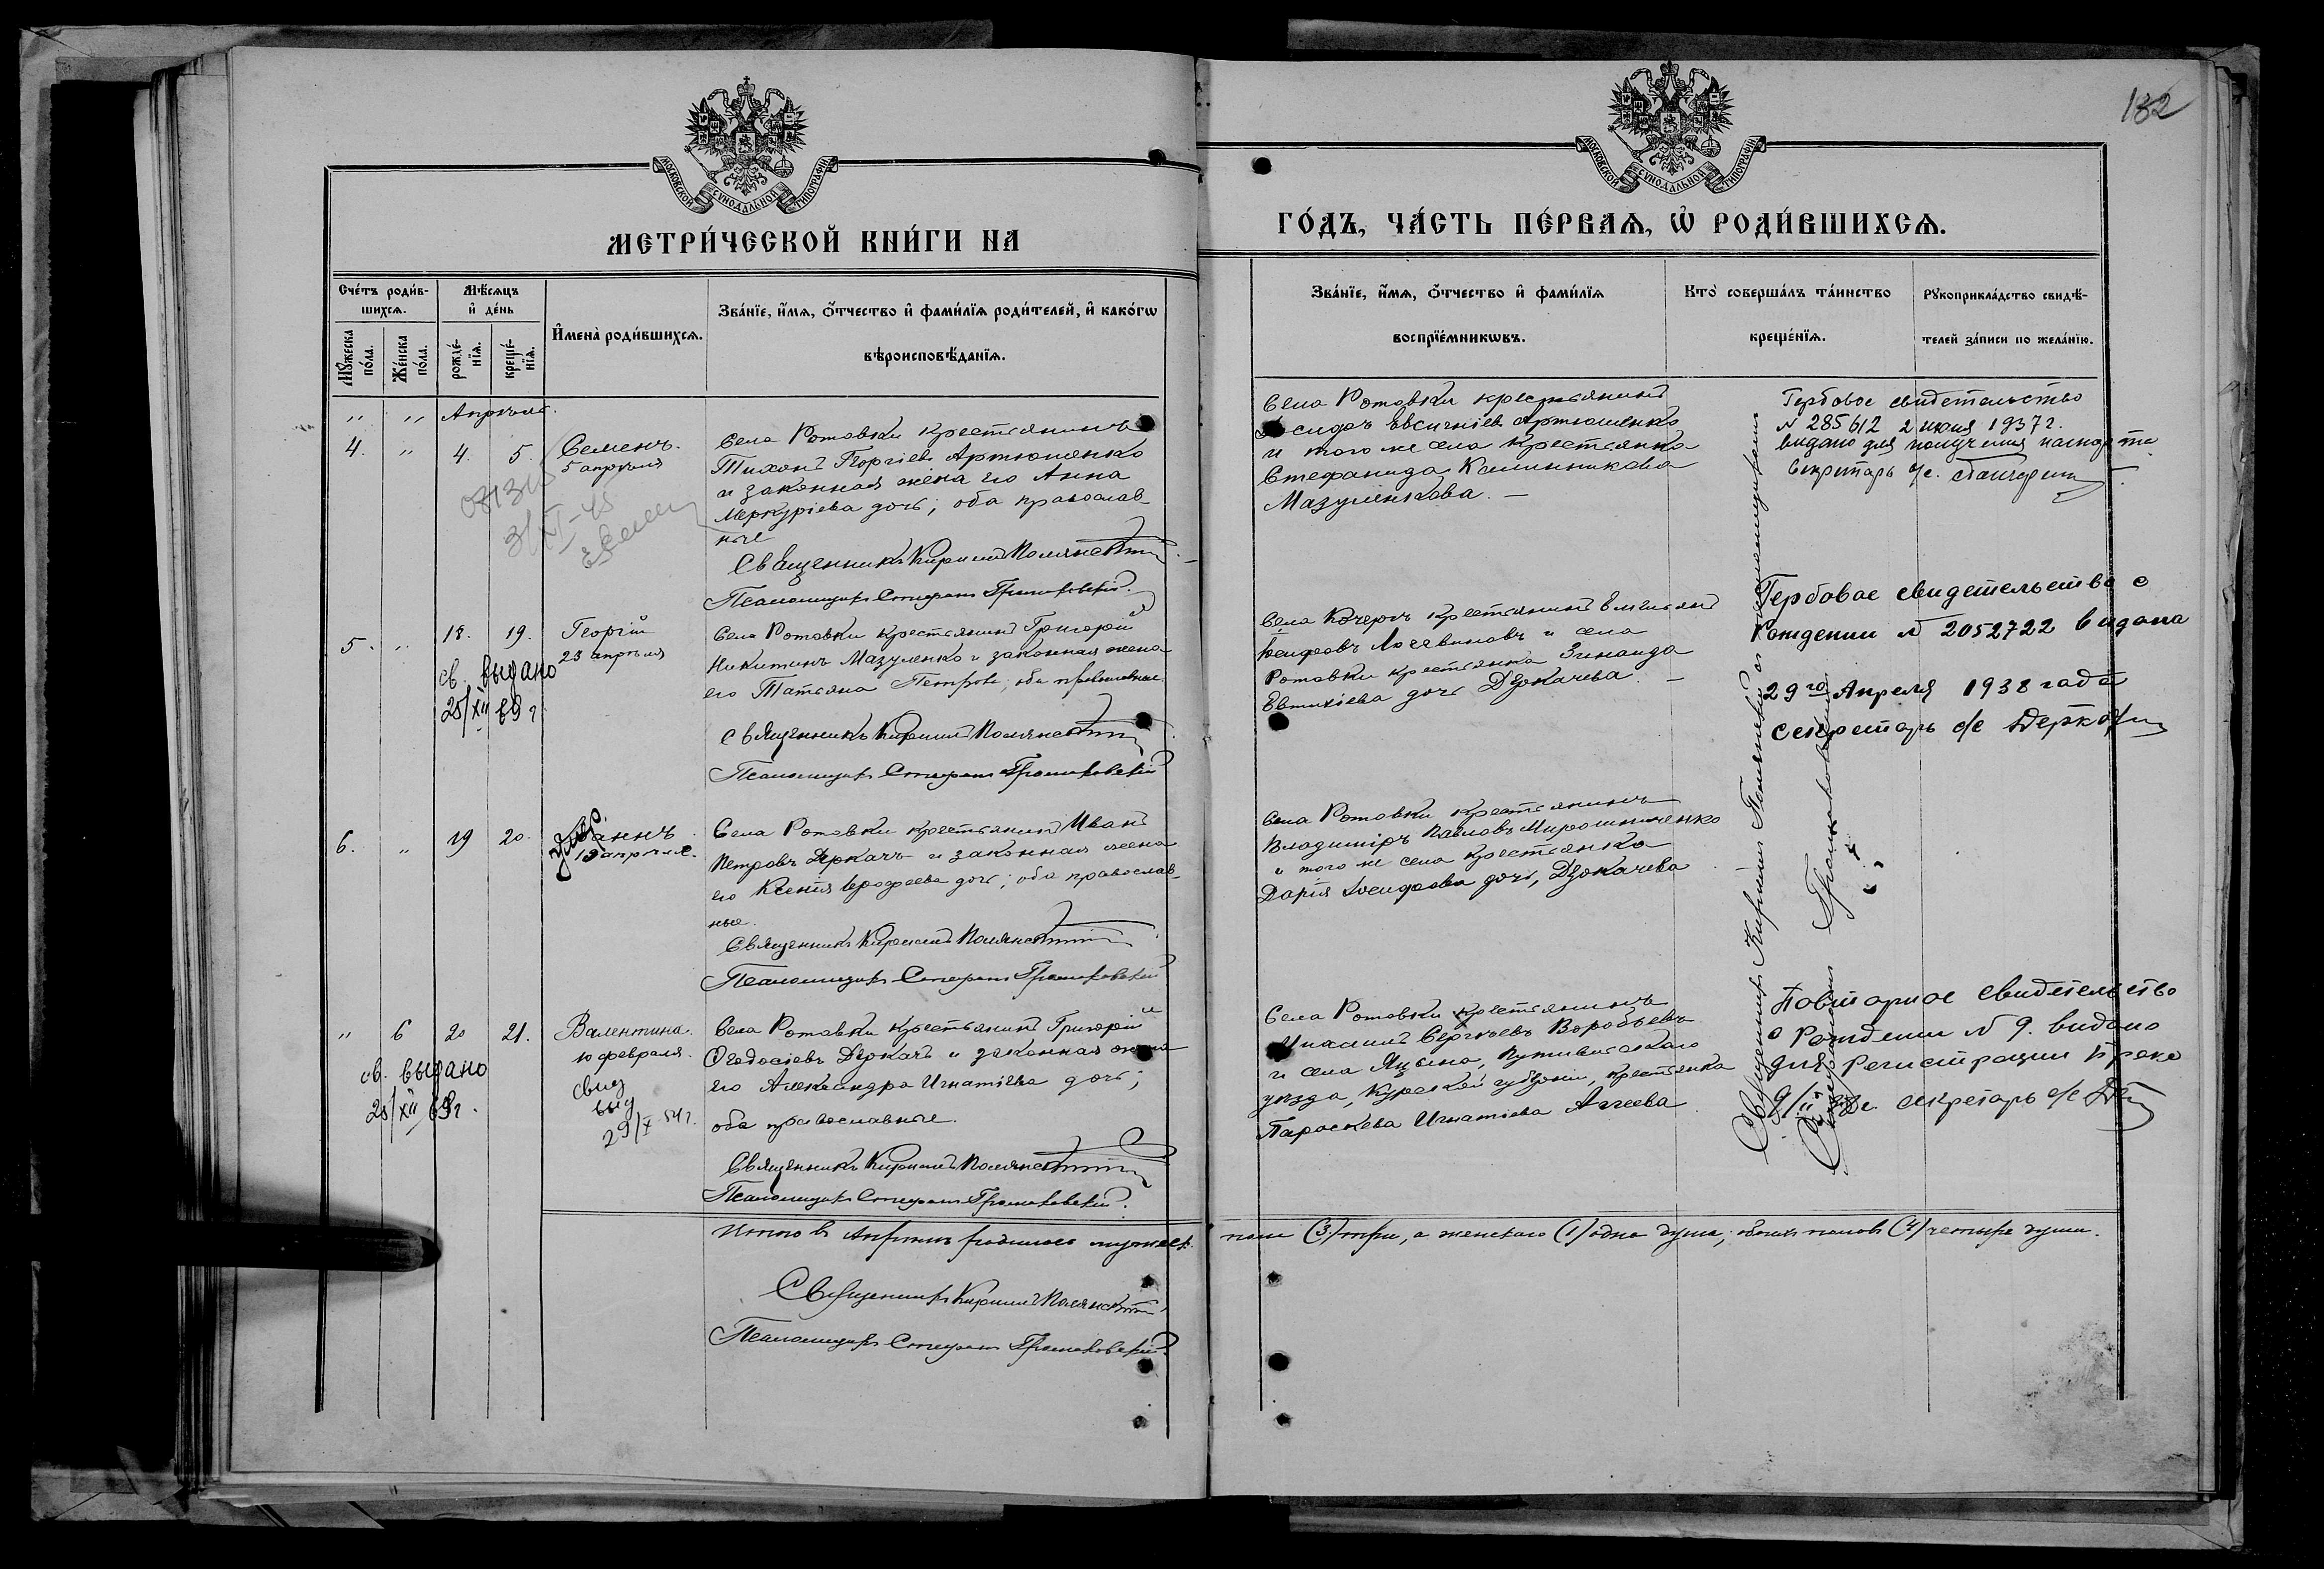 132
МОСКОВСКОЙ СѴНОДАЛЬНОЙ ТИПОГРАФІИ
МОСКОВСКОЙ СѴНОДАЛЬНОЙ ТИПОГРАФІИ
МЕТРИ́ЧЕСКОЙ КНИ́ГИ НА
ГО́ДЪ, ЧА́СТЬ ПЕ́РВАѦ, Ѡ҆ РОДИ́ВШИХСѦ.
Сче́тъ роди́в-
шихсѧ.
Мꙋ́жеска по́ла.
Же́нска по́ла.
Мѣ́сяцъ
и҆ де́нь
рожде́-
нїѧ.
креще́-
нїѧ.
И҆мена̀ роди́вшихсѧ.
Зва́нїе, и҆́мѧ, ѻ҆́тчество и҆ фами́лїѧ роди́телей, и҆ како́гѡ
вѣроисповѣ́данїѧ.
Зва́нїе, и҆́мѧ, ѻ҆́тчество и҆ фами́лїѧ
воспрїе́мникѡвъ.
Кто̀ соверша́лъ та́инство
креще́нїѧ.
Рꙋкоприкла́дство свидѣ́-
телей за́писи по жела́нїю.
" " Апрѣль.
4. " 4. 5. Семенъ.
5 апрѣля
3/XI-45
Села Ротовки крестьянинъ
Тихонъ Георгіевъ Артюшенко
и законная жена его Анна
Меркуріева дочь; оба православ-
ные
Священникъ Кириллъ Полянскій
Псаломщикъ Стефанъ
Села Ротовки крестьянинъ
Евсигніевъ Артюшенко
и того же села крестьянка
Стефанида Калинникова
Мазуленкова. —
Гербовое свидетельство
№ 285612 2 июня 1937 г.
выдано для получения паспорта
Секретарь с/с.
5. " 18. 19. Георгій
23 апрѣля
св. выдано
25/XII 69 г.
Села Ротовки крестьянинъ Григорій
Никитинъ Мазуленко и законная жена
его Татьяна Петрова; оба православные.
Священникъ Кириллъ Полянскій
Псаломщикъ Стефанъ
Села Кочерги крестьянинъ Емельянъ
Іосифовъ Логвиновъ и села
Ротовки крестьянка Зинаида
Евтихіева дочь Деркачева. —
Гербовое свидетельство о
Рождении № 2052722 выдана
29го Апреля 1938 года
секретарь с/с Деркач
6. " 19 20.
Умер.
19 апрѣля.
Села Ротовки крестьянинъ Иванъ
Петровъ Деркачъ и законная жена
его Ксенія Іерофеева дочь; оба православ-
ные.
Священникъ Кириллъ Полянскій
Псаломщикъ Стефанъ
Села Ротовки крестьянинъ
Владиміръ Павловъ Мирошниченко
и того же села крестьянка
Дарія Іосифова дочь, Деркачева
" 6 20 21. Валентина.
10 февраля.
св. выдано
25/XII 69 г.
свид
выд
29/X 54 г.
Села Ротовки крестьянинъ Григорій
Ѳеодосіевъ Деркачъ и законная жена
его Александра Игнатіева дочь;
оба православные.
Священникъ Кириллъ Полянскій
Псаломщикъ Стефанъ
Села Ротовки крестьянинъ
Михаилъ Сергѣевъ Воробьевъ
и села Яцына, Путивльскаго
уѣзда, Курской губерніи, крестьянка
Параскева Игнатіева Агеева
Повторное свидетельство
о Рождении № 9. выдано
для регистрации брака
секретарь с/с
Священникъ Кириллъ Полянскій
Итого въ Апрѣлѣ родилось мужеск.
пола (3) три, а женскаго (1) одна душа; обоихъ половъ (4) четыре души.
Священникъ Кириллъ Полянскій
Псаломщикъ Стефанъ